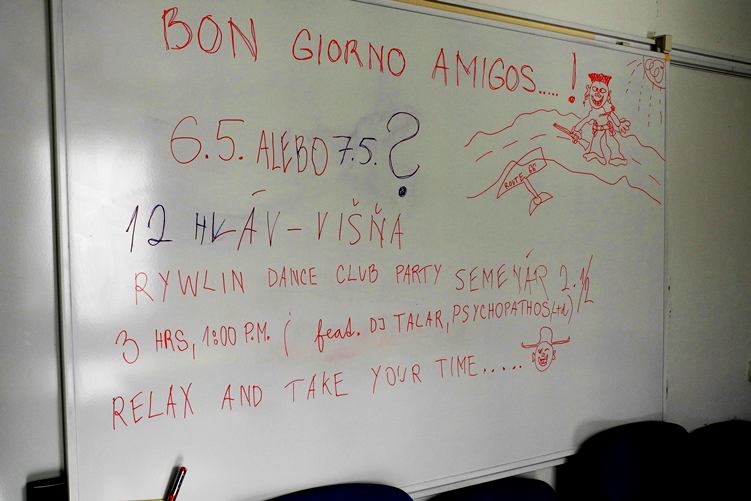 BON GIORNO AMIGOS.....!
6.5. ALEBO 7.5. ?
ROUTE 66
12 HLÁV - VIŠŇA
RYWLIN DANCE CLUB PARTY SEMENÁR 2. 1/2
3 HRS, 1:00 P.M. ( feat. DJ TALAR, PSYCHOPATHOS Ltd)
RELAX AND TAKE YOUR TIME.....